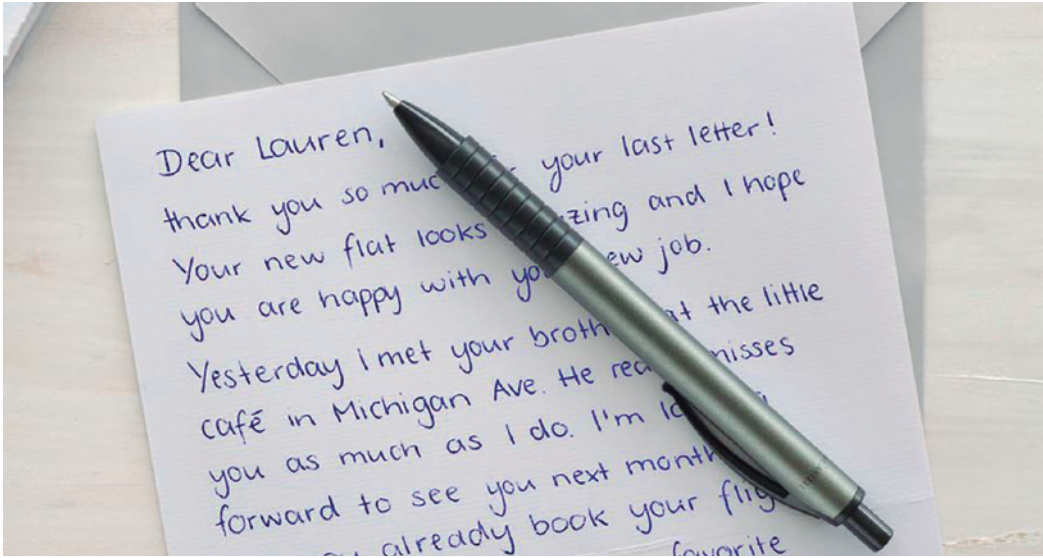 Dear Lauren,
thank you so muc your last letter!
Your new flat looks zing and I hope
you are happy with yo ew job.
Yesterday I met your broth at the little
café in Michigan Ave. He rea misses
you as much as I do. I'm lo
forward to see you next month
already book your flig
favorite